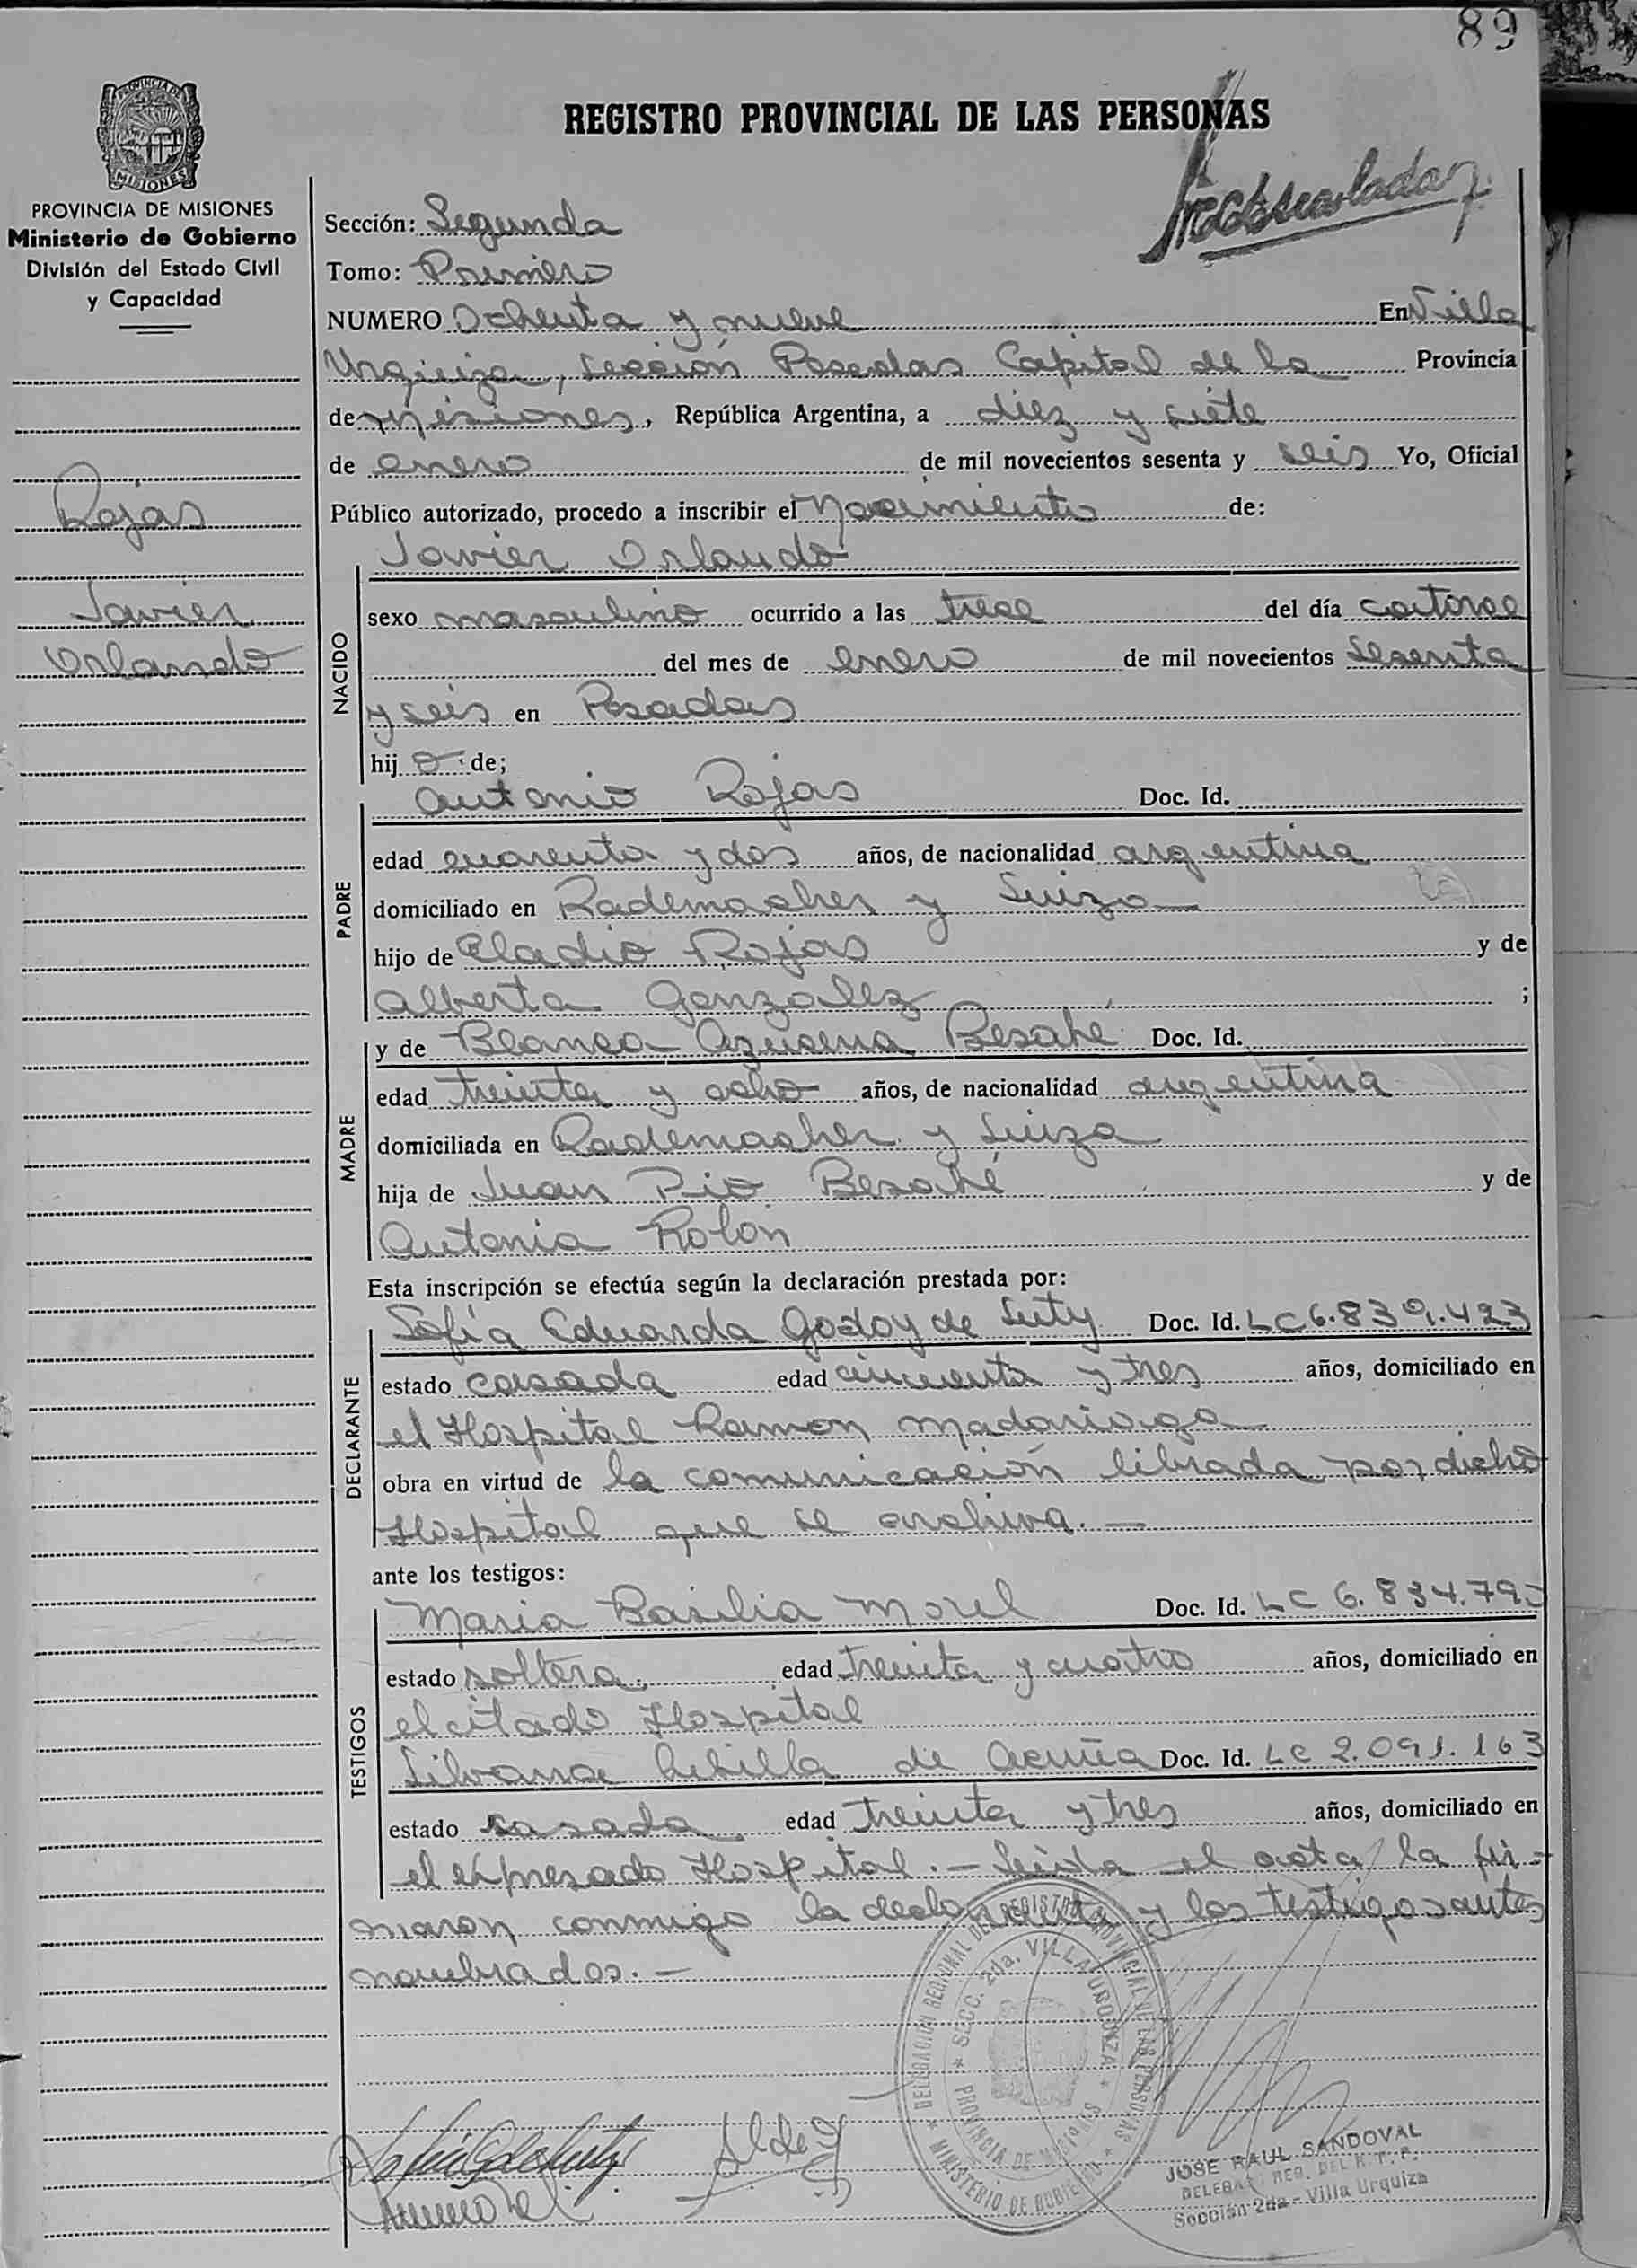 89
REGISTRO PROVINCIAL DE LAS PERSONAS
MISIONES
PROVINCIA DE MISIONES
Ministerio de Gobierno
División del Estado Civil
y Capacidad
Rojas
Javier
Orlando
Sección: Segunda
Tomo: Primero
NUMERO Ochenta y nueve En Villa
Urquiza, Sección Posadas Capital de la Provincia
de Misiones, República Argentina, a diez y siete
de enero de mil novecientos sesenta y seis Yo, Oficial
Público autorizado, procedo a inscribir el Nacimiento de:
Javier Orlando
NACIDO
sexo masculino ocurrido a las trece del día catorce
del mes de enero de mil novecientos sesenta
y seis en Posadas
hijo de;
Antonio Rojas Doc. Id.
PADRE
edad cuarenta y dos años, de nacionalidad argentina
domiciliado en Rademacher y Suiza
hijo de Eladio Rojas y de
Alberta González ;
y de Blanca Azucena Besahé Doc. Id.
MADRE
edad treinta y ocho años, de nacionalidad argentina
domiciliada en Rademacher y Suiza
hija de Juan Pio Besahé y de
Antonia Rolón
Esta inscripción se efectúa según la declaración prestada por:
Sofía Eduarda Godoy de Suty Doc. Id. LC 6.839.423
DECLARANTE
estado casada edad cincuenta y tres años, domiciliado en
el Hospital Ramon Madariaga
obra en virtud de la comunicación librada por dicho
Hospital que se archiva.—
ante los testigos:
Maria Basilia Morel Doc. Id. LC 6.834.79
TESTIGOS
estado soltera edad treinta y cuatro años, domiciliado en
el citado Hospital
Silvana de Acuña Doc. Id. LC 2.091.163
estado casada edad treinta y tres años, domiciliado en
el expresado Hospital.— Leida el acta, la fir-
maron conmigo la declarante y los testigos antes
nombrados.—
DELEGACION REGIONAL DEL REGISTRO PROVINCIAL DE LAS PERSONAS
* MINISTERIO DE GOBIERNO *
* SECC. 2da. VILLA URQUIZA *
PROVINCIA DE MISIONES
JOSE RAUL SANDOVAL
Sección 2da - Villa Urquiza